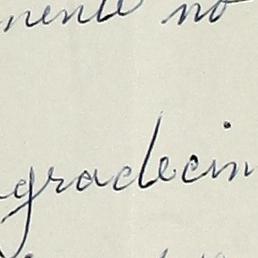 nente no
gradecim